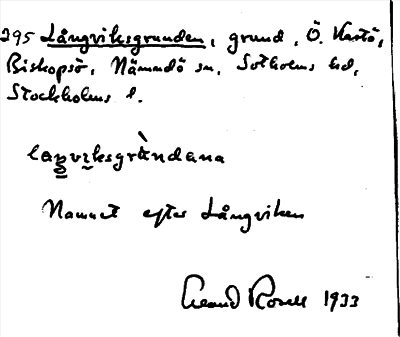 295 Långviksgrunden, grund, Ö. Kastö,
Biskopsö, Nämndö sn, Sotholms hd,
Stockholms l.
laŋviksgrùndana
Namnet efter Långviken
1933